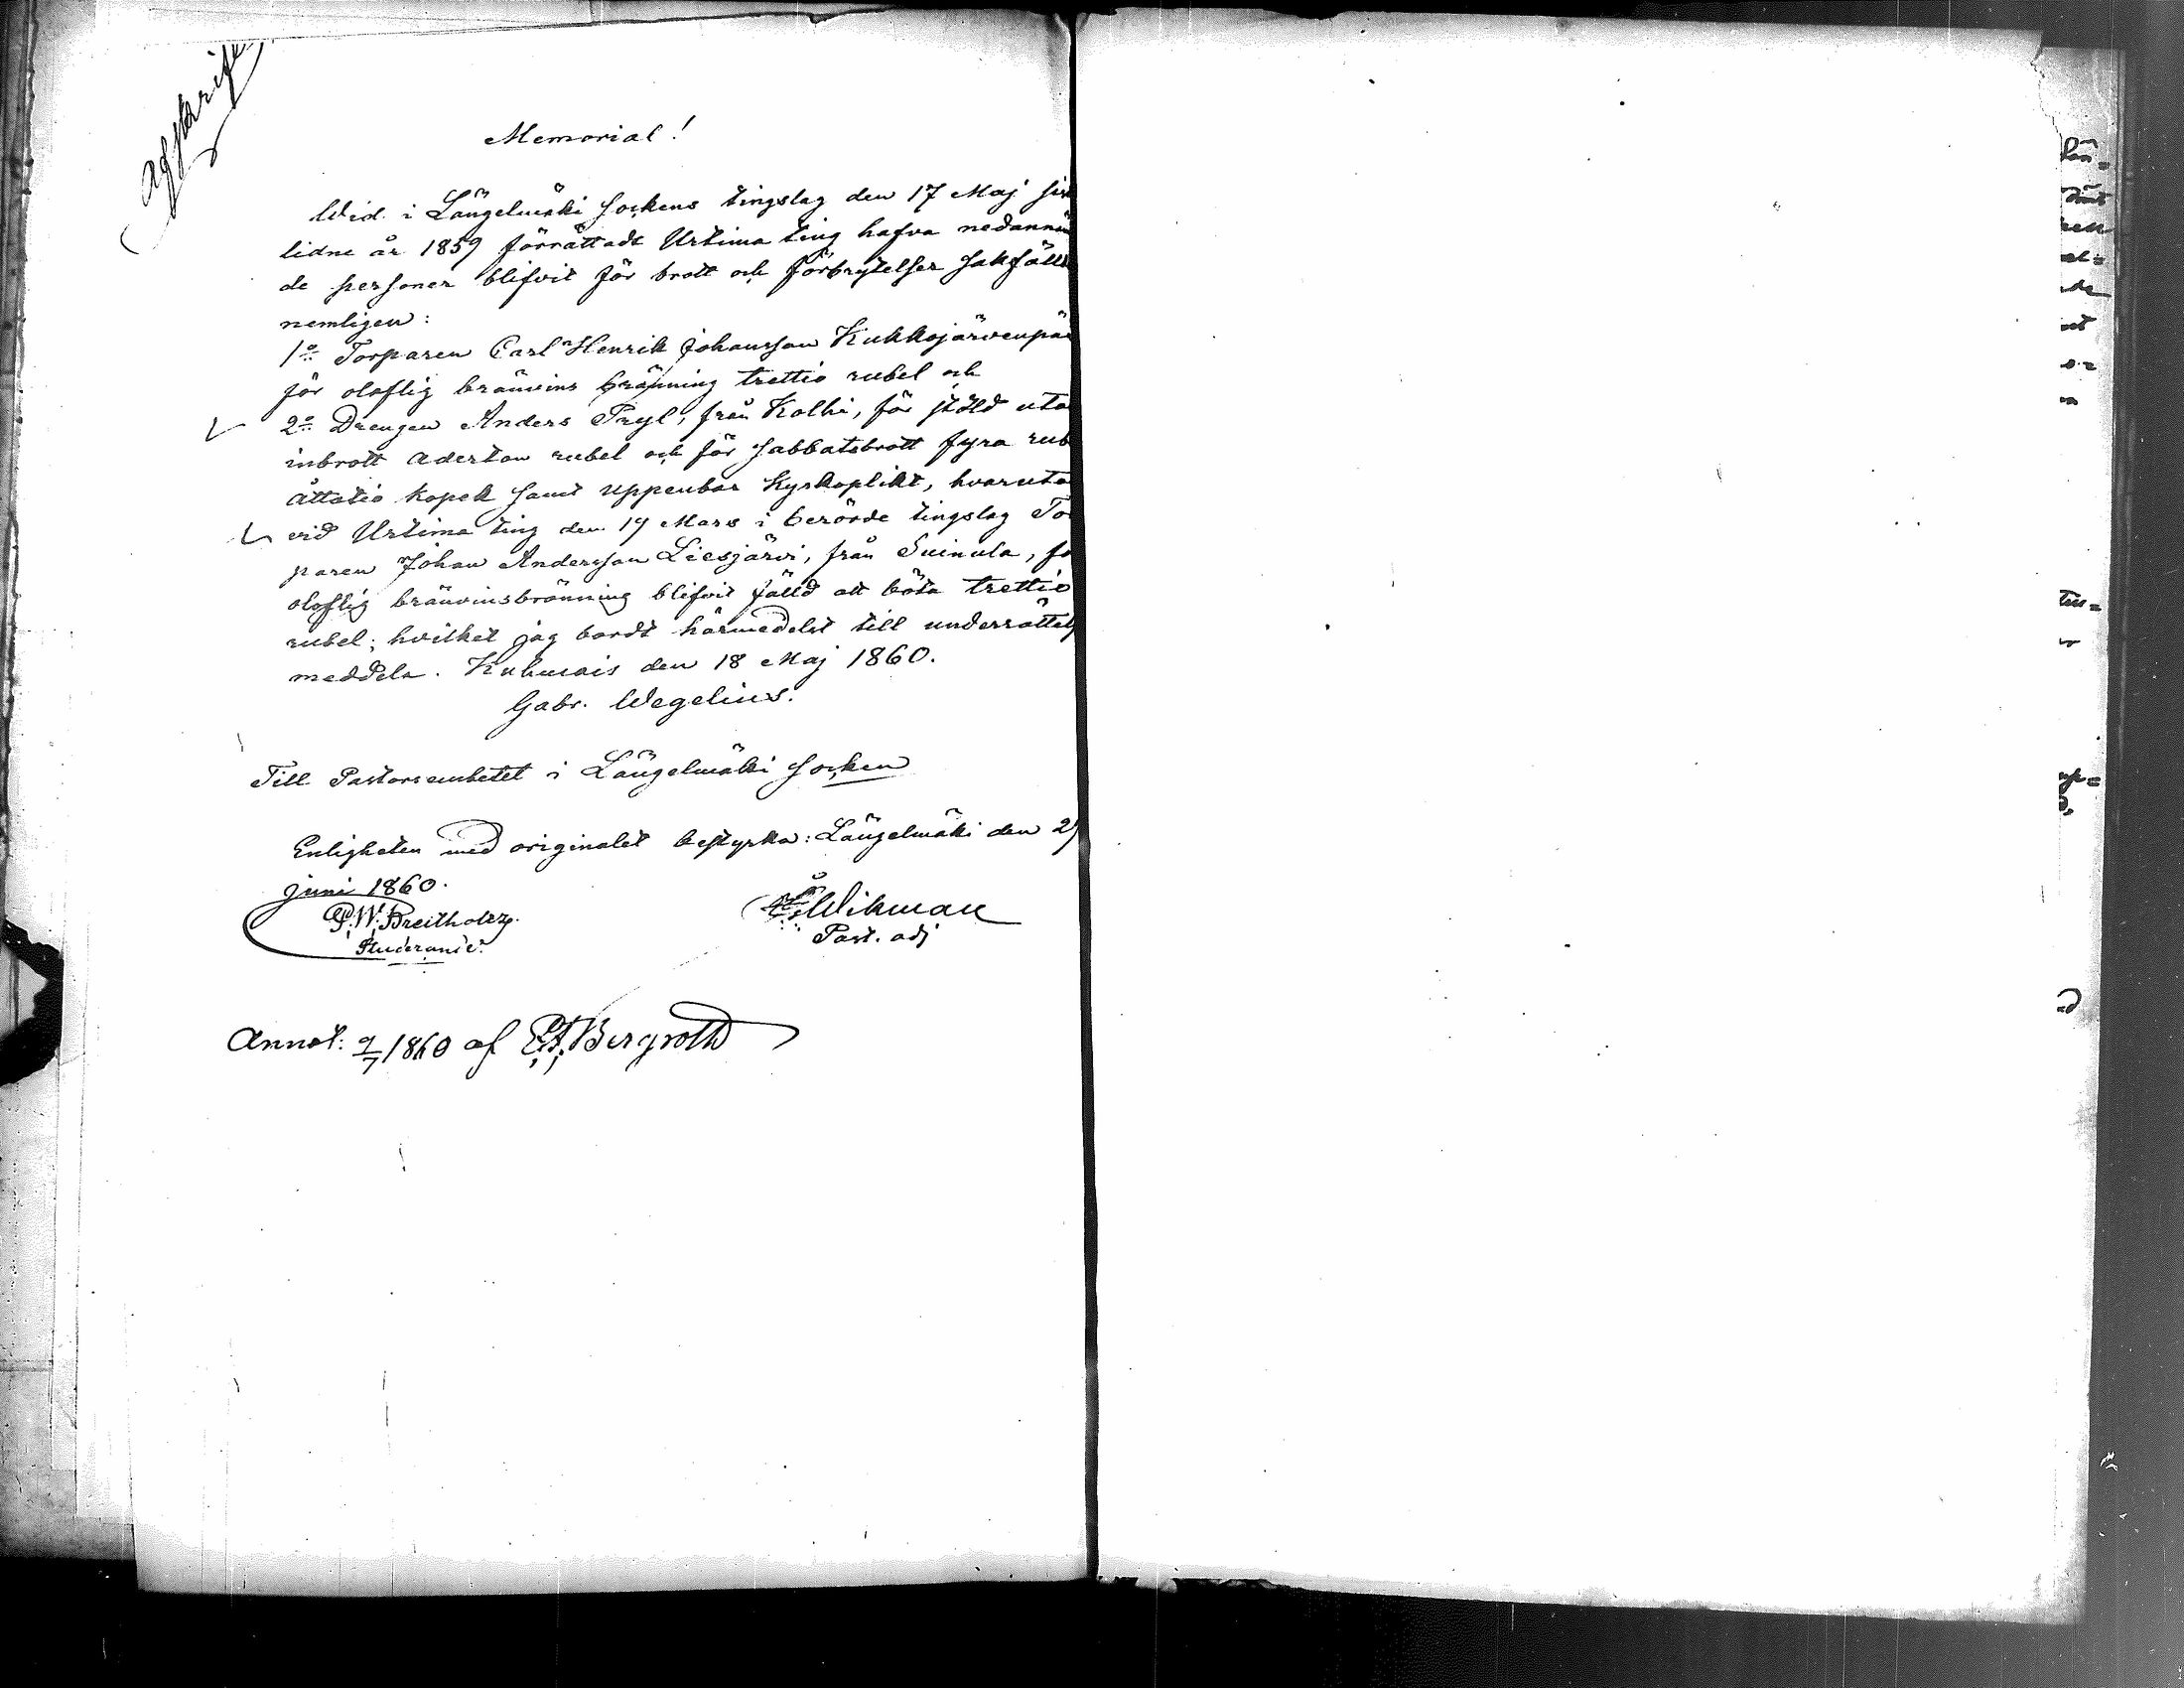 Afskrift
Memorial!
Wid i Längelmäki Sockens tingslag den 17 Maj sist
lidne år 1859 förrättadt Urtima ting hafva nedannäm
de personer blifvit för brott och förbrytelser sakfällde
nemligen:
1:o Torparen Carl Henrik Johansson Kukkojärvenpää
för oloflig bränvins bränning trettio rubel och
2:o Drengen Anders Pryl, från Kolhi, för stöld uta
inbrott aderton rubel och för sabbatsbrott fyra rub
åttatio kopek samt uppenbar Kyrkoplikt, hvaruta
vid Urtima ting den 19 Mars i berörde tingslag Tor
paren Johan Andersson Liesjärvi, från Suinula, fö
oloflig bränvinsbränning blifvit fälld att böta trettio
rubel; hvilket jag bordt härmedelst till underrättels
meddela. Kuhmais den 18 Maj 1860.
Gabr. Wegelius.
Till Pastorsembetet i Längelmäki Socken
Enligheten med originalet bestyrka: Längelmäki den 2
juni 1860.
Wikman
P.W. Breitholtz.
Past. adj
Studerande.
Annot: 9/7 1860 af Bergroth